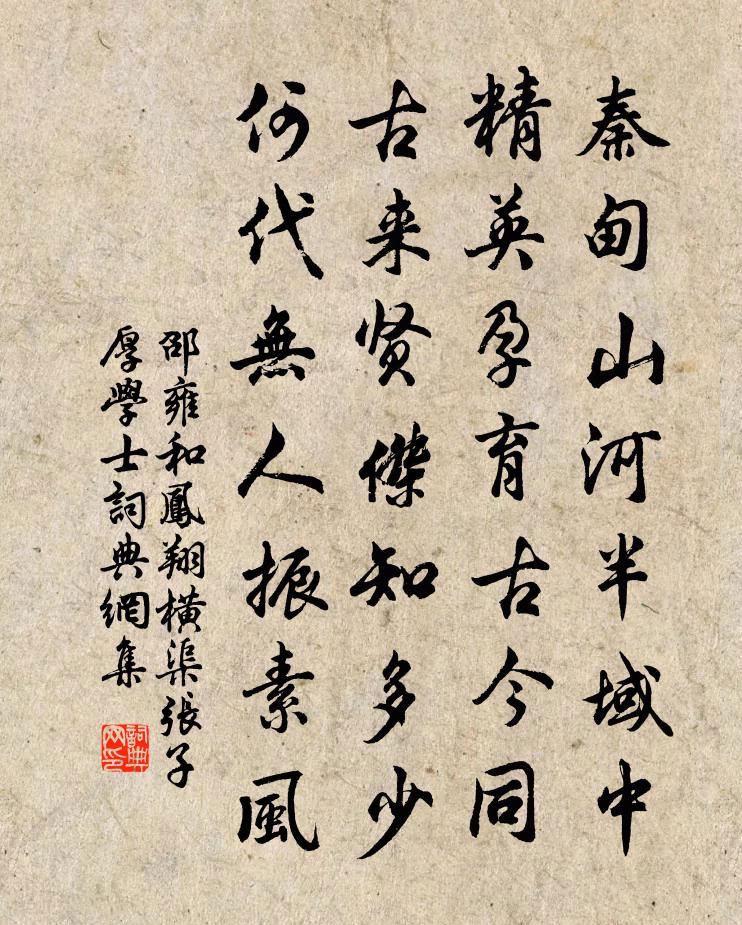 秦甸山河半域中
精英孕育古今同
古来贤傑知多少
何代無人振素風
邵雍和鳳翔橫渠張子
厚學士詞典網集
詞典網印